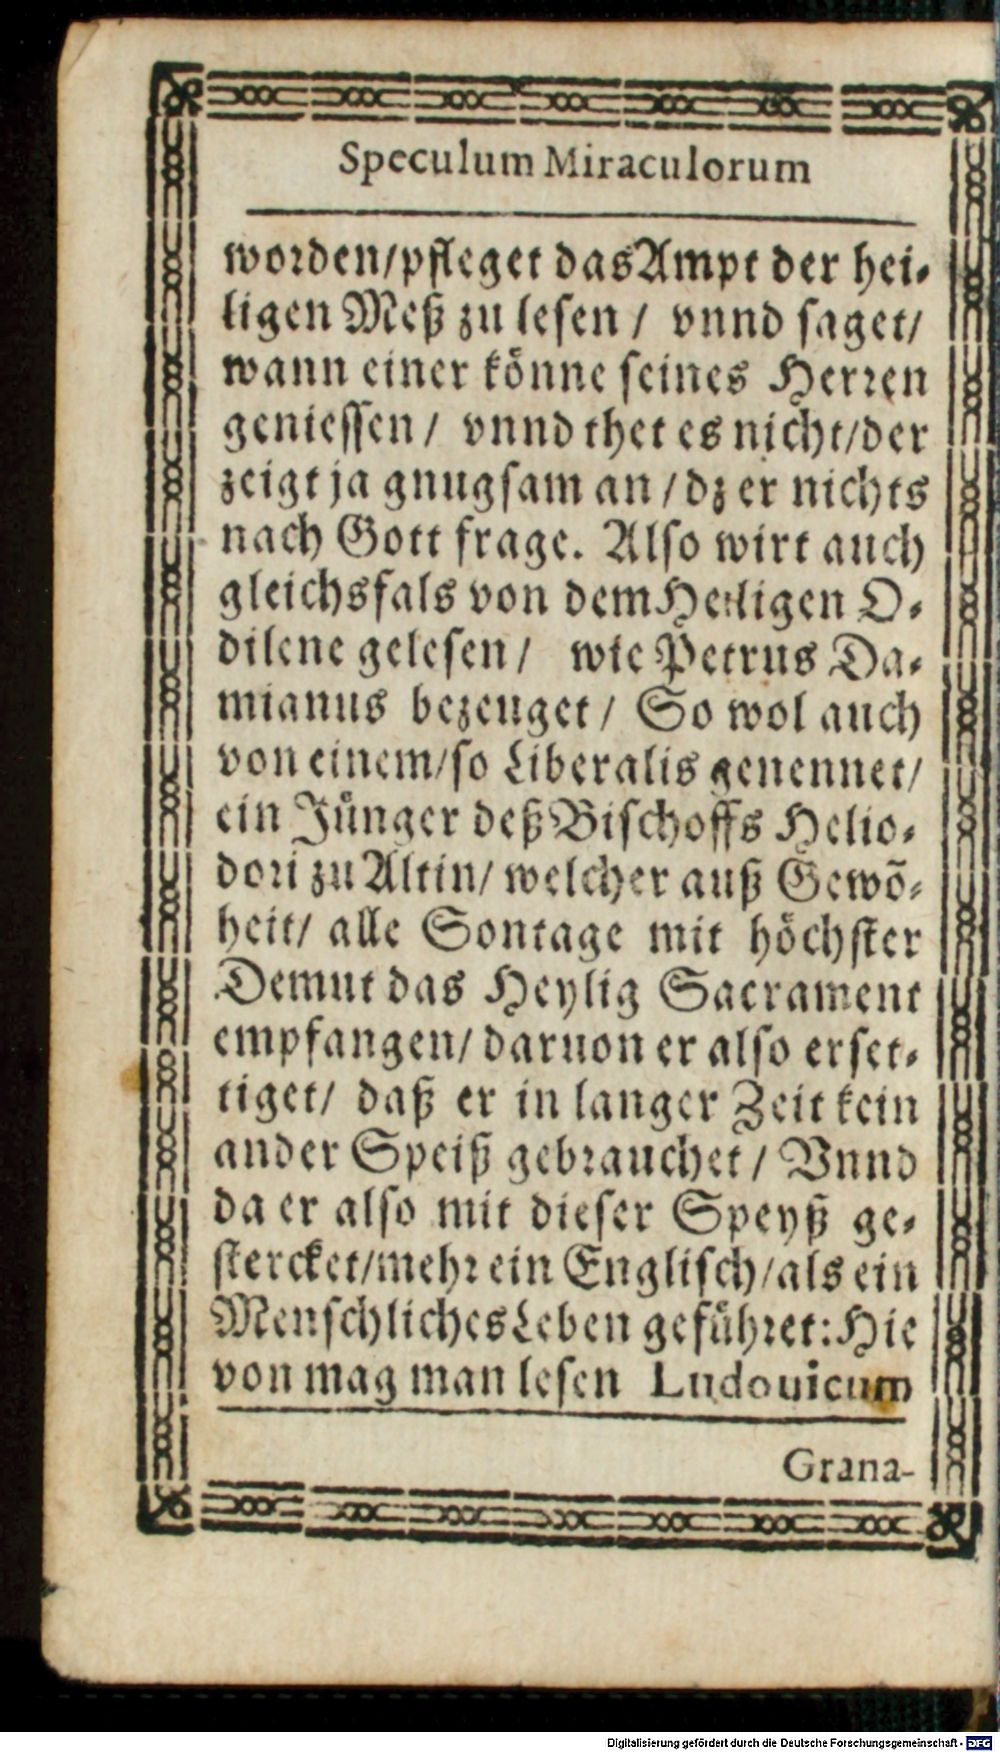 Speculum Miraculorum
worden/pfleget das Ampt der hei-
ligen Meß zu lesen / vnnd saget/
wann einer könne seines Herren
geniessen / vnnd thet es nicht/der
zeigt ja gnugsam an / dz er nichts
nach Gott frage. Also wirt auch
gleichsfals von dem Heiligen O-
dilene gelesen / wie Petrus Da-
mianus bezeuget / So wol auch
von einem/so Liberalis genennet/
ein Jünger deß Bischoffs Helio-
dori zu Altin/ welcher auß Gewõ-
heit/ alle Sontage mit höchster
Demut das Heylig Sacrament
empfangen/ daruon er also erset-
tiget/ daß er in langer Zeit kein
ander Speiß gebrauchet / Vnnd
da er also mit dieser Speyß ge-
stercket/mehr ein Englisch/als ein
Menschliches Leben geführet: Hie
von mag man lesen Ludouicum
Grana-
Digitalisierung gefördert durch die Deutsche Forschungsgemeinschaft - DFG